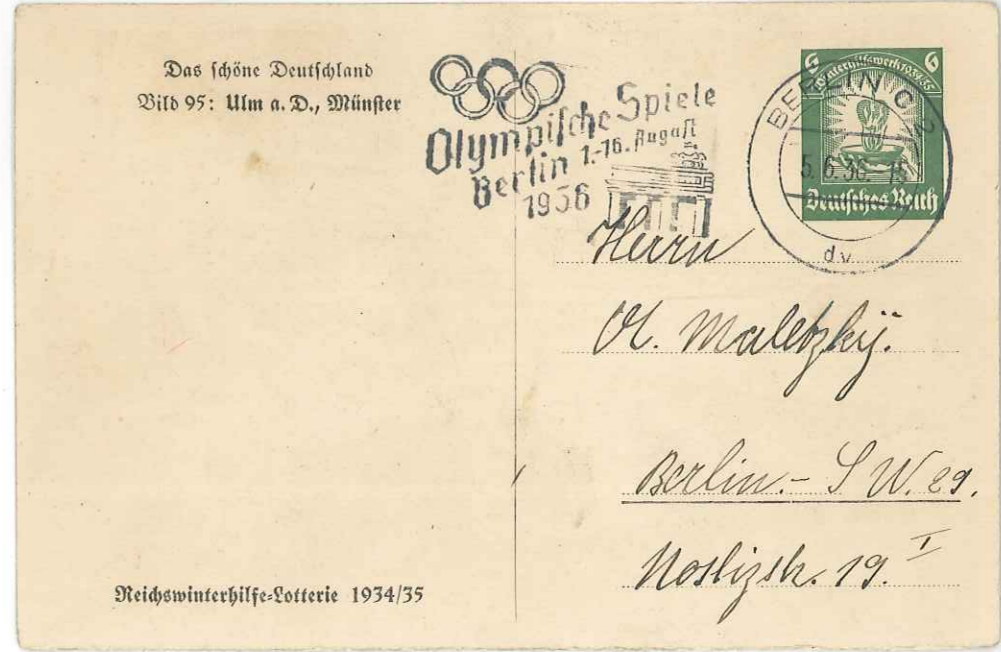 Das schöne Deutschland
Bild 95: Ulm a. D., Münster
Olympische Spiele
Berlin 1.-16. August
1936
6 6
Winterhilfswerk 1934/35
Deutsches Reich
BERLIN C 2
5.6.36.-15
d v
Herrn
A. Maletzký.
Berlin.- S W. 29.
Nostizstr. 19. I
Reichswinterhilfe-Lotterie 1934/35